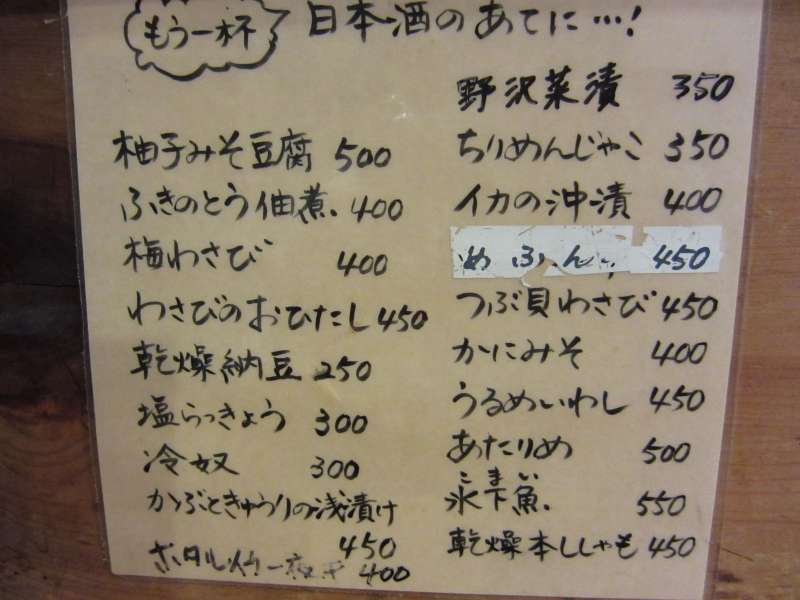 もう一杯 日本酒のあてに…!
野沢菜漬 350
柚子みそ豆腐 500
ちりめんじゃこ 350
ふきのとう佃煮. 400
イカの沖漬 400
梅わさび 400
めふん 450
わさびのおひたし 450
つぶ貝わさび 450
乾燥納豆 250
かにみそ 400
塩らっきょう 300
うるめいわし 450
冷奴 300
あたりめ 500
かぶときゅうりの浅漬け
450
こまい
氷下魚. 550
ホタルイカ一夜干 400
乾燥本ししゃも 450